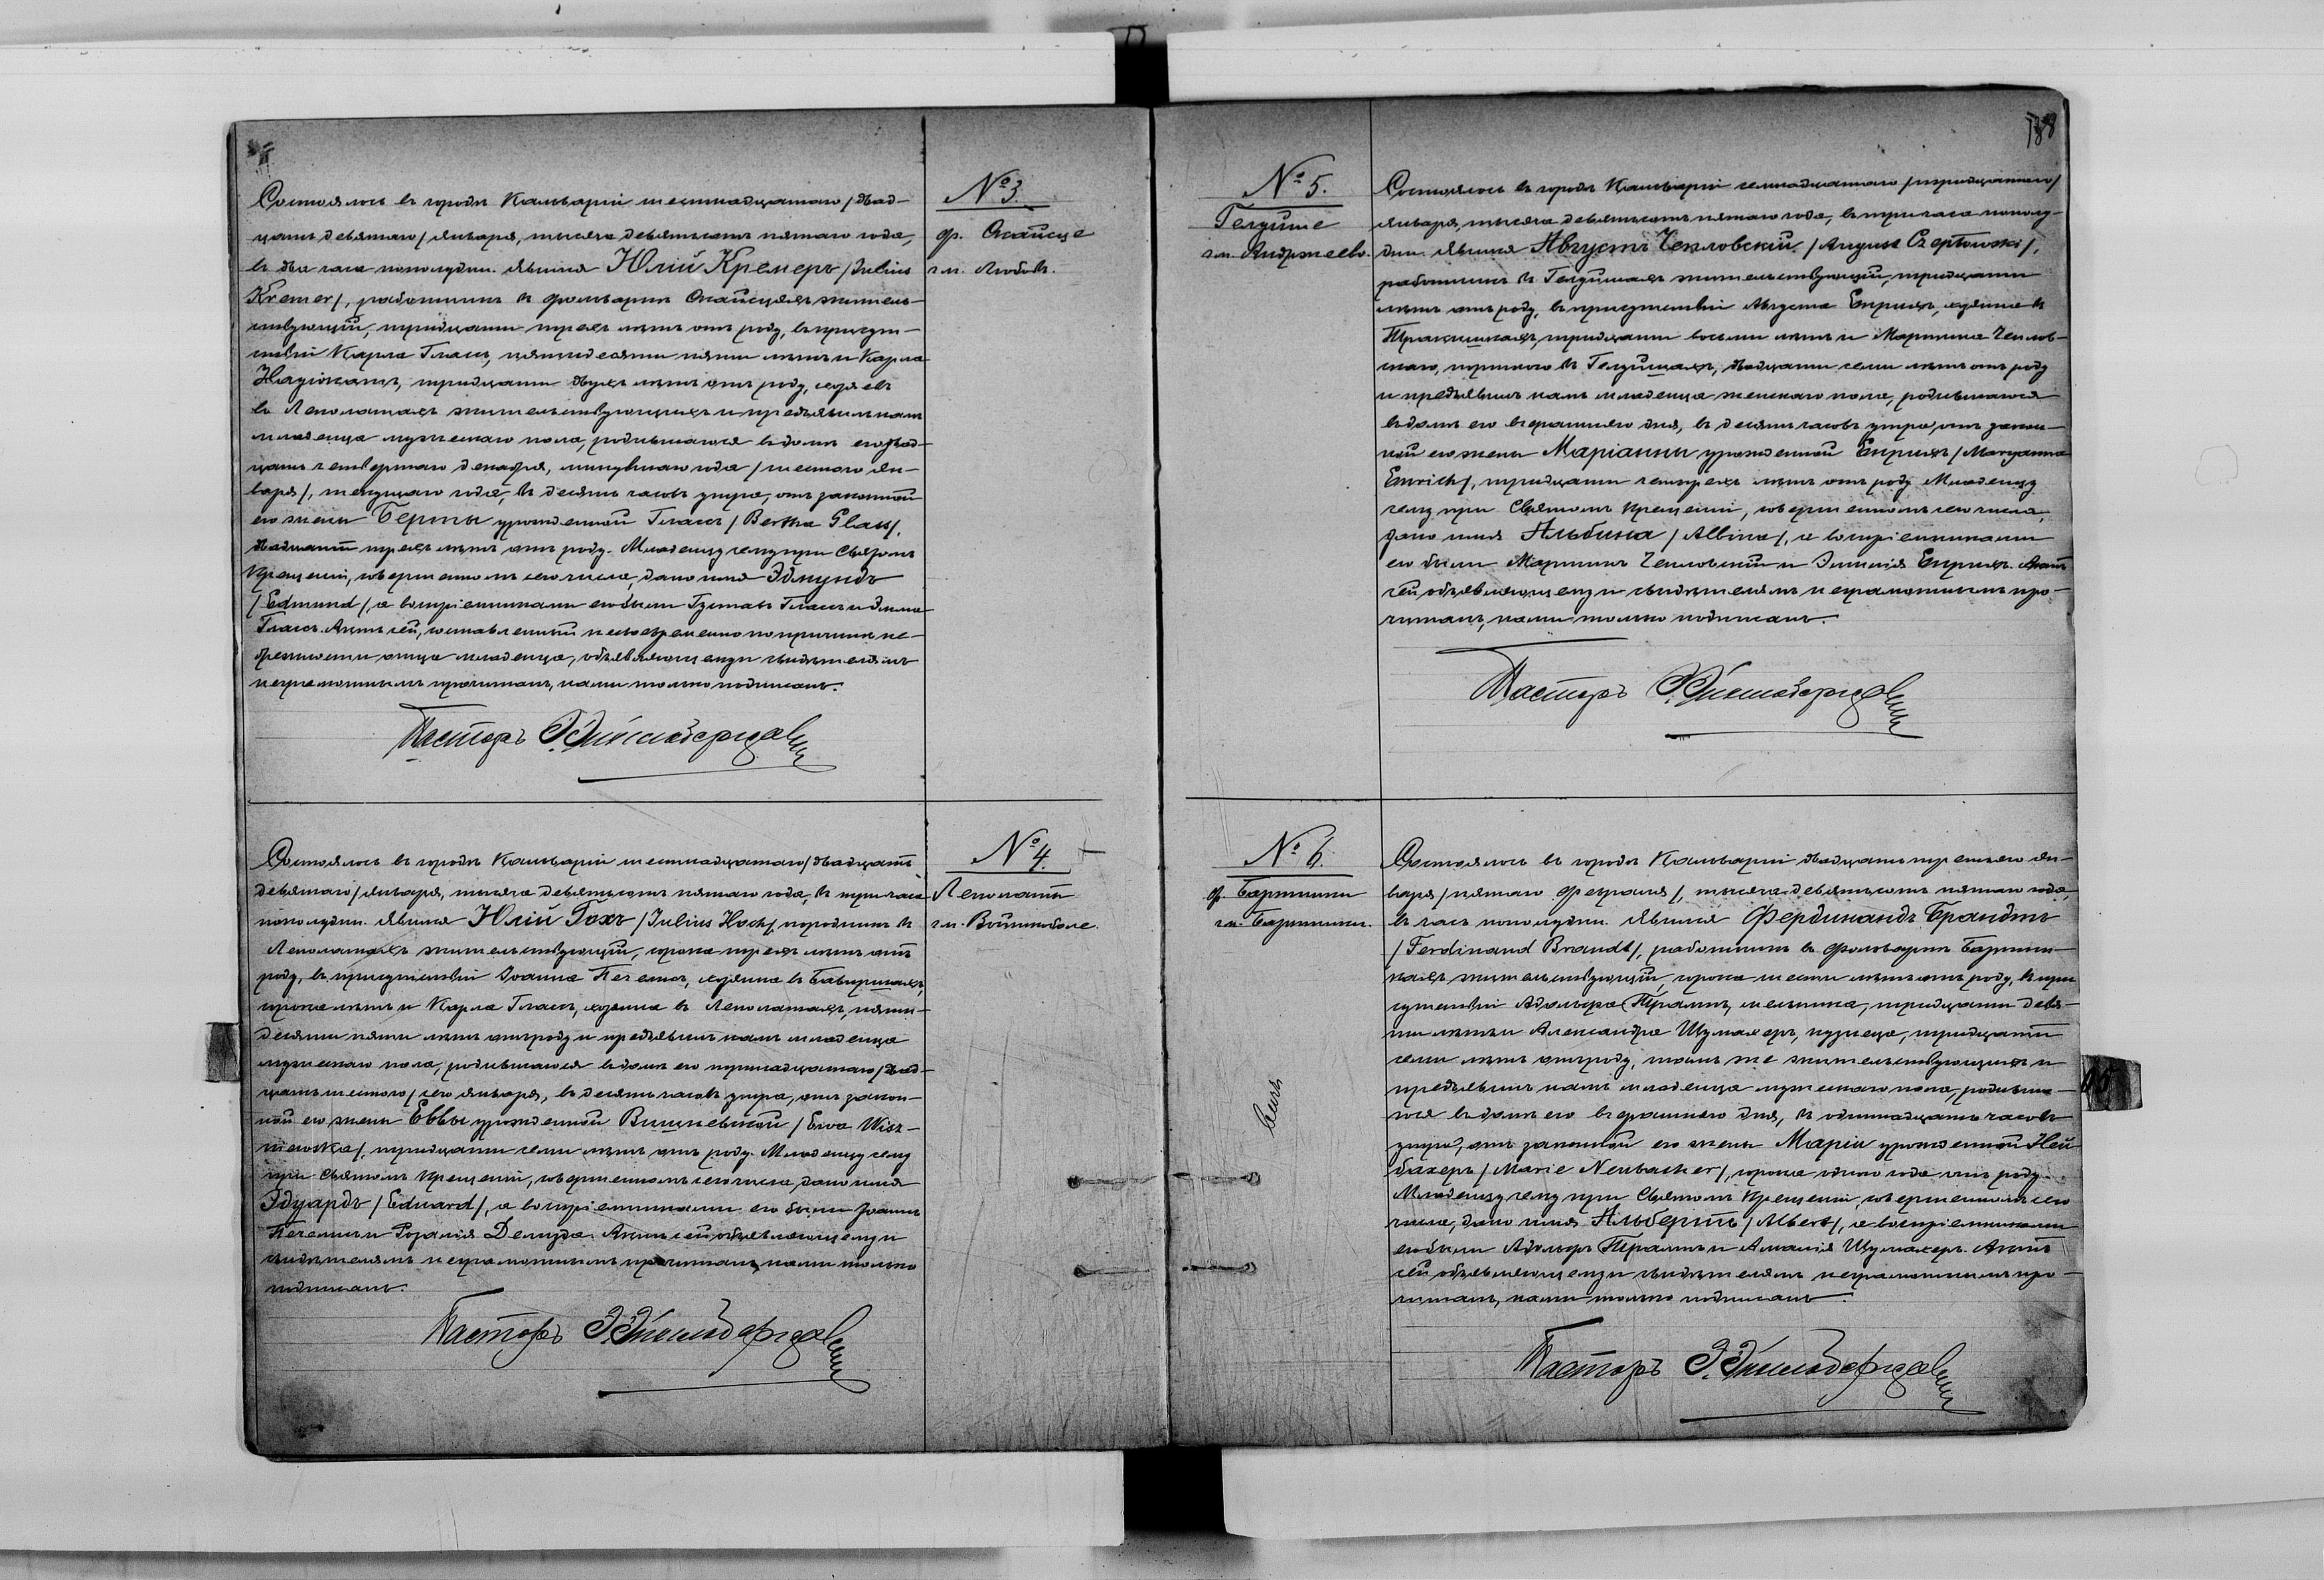 № 3.
ф. Окайсце
гм. Любовъ.
Состоялось въ городѣ Кальваріи шестнадцатаго /двад-
цать девятаго/ января, тысяча девятьсотъ пятаго года,
въ два часа пополудни. Явился Юлій Кремеръ /Julius
Kremer/, работникъ въ фольваркѣ Окайсцяхъ житель-
ствующій, тридцати трехъ лѣтъ отъ роду, въ присут-
ствіи Карла Гласъ, пятидесяти пяти лѣтъ и Карла
двухъ лѣтъ отъ роду,
въ Леполатахъ жительствующихъ и предъявилъ намъ
младенца мужескаго пола, родившагося въ домѣ его двад-
цать четвертаго декабря, минувшаго года /шестого ян-
варя/, текущаго года, въ десять часовъ утра, отъ законной
его жены Берты урожденной Гласъ /Bertha Glass/,
двадцати трехъ лѣтъ отъ роду. Младенцу сему при Святомъ
Крещеніи, совершенномъ сего числа, дано имя Эдмундъ
/Edmund/, а воспріемниками его были Густавъ Гласъ и
Гласъ. Актъ сей, составленный несвоевременно по причинѣ не-
брежности отца младенца, объявляющему и свидѣтелямъ
неграмотнымъ прочитанъ, нами только подписанъ.
Пасторъ
№ 4.
Леполаты
гм. Войткоболе.
Состоялось въ городѣ Кальваріи шестнадцатаго /двадцать
девятаго/ января, тысяча девятьсотъ пятаго года, въ три часа
пополудни. Явился Юлій Гохъ /Julius Hoch/, портникъ въ
Леполатахъ жительствующій, сорока трехъ лѣтъ отъ
роду, въ присутствіи Іоанна хозяина въ
сорока лѣтъ и Карла Гласъ, хозяина въ Леполатахъ, пяти-
десяти пяти лѣтъ отъ роду и предъявилъ намъ младенца
мужескаго пола, родившагося въ домѣ его тринадцатаго /двад-
цать шестого/ сего января, въ десять часовъ утра, отъ закон-
ной его жены Еввы урожденной Вишневской /Ewa Wisz-
niewska/, тридцати семи лѣтъ отъ роду. Младенцу сему
при Святомъ Крещеніи, совершенномъ сего числа, дано имя
Эдуардъ /Eduard/, а воспріемниками его были Іоаннъ
и Розалія Актъ сей объявляющему и
свидѣтелямъ неграмотнымъ прочитанъ, нами только
подписанъ.
Пасторъ
188
№ 5.
Гелдише
гм. Андржеево.
Состоялось въ городѣ Кальваріи семнадцатаго /тридцатаго/
января, тысяча девятьсотъ пятаго года, въ три часа пополу-
дни. Явился Августъ Чепловскій /August Czepłowski/,
работникъ въ Гелдишахъ жительствующій, тридцати
лѣтъ отъ роду, въ присутствіи Августа Енрихъ, хозяина въ
тридцати восьми лѣтъ и Мартина Чеплов-
скаго, портного въ Гелдишахъ, двадцати семи лѣтъ отъ роду
и предъявилъ намъ младенца женскаго пола, родившагося
въ домѣ его вчерашняго дня, въ десять часовъ утра, отъ закон-
ной его жены Маріанны урожденной Енрихъ /Maryanna
Enrich/, тридцати четырехъ лѣтъ отъ роду. Младенцу
сему при Святомъ Крещеніи, совершенномъ сего числа,
дано имя Альбина /Albina/, а воспріемниками
его были Мартинъ Чепловскій и Эмилія Енрихъ. Актъ
сей объявляющему и свидѣтелямъ неграмотнымъ про-
читанъ, нами только подписанъ.
Пасторъ
№ 6.
ф. Бартники
гм. Бартники.
Состоялось въ городѣ Кальваріи двадцать третьяго ян-
варя /пятаго февраля/, тысяча девятьсотъ пятаго года,
въ часъ пополудни. Явился Фердинандъ Брандтъ
/Ferdinand Brandt/, работникъ въ фольваркѣ Бартни-
кахъ жительствующій, сорока шести лѣтъ отъ роду, въ при-
сутствіи Адольфа мельника, тридцати девя-
ти лѣтъ и Александра Шумахеръ, кузнеца, тридцати
семи лѣтъ отъ роду, тамъ же жительствующихъ и
предъявилъ намъ младенца мужескаго пола, родивша-
гося въ домѣ его вчерашняго дня, въ одиннадцать часовъ
утра, отъ законной его жены Маріи урожденной Ней-
бахеръ /Marie Neubacher/, сорока одного года отъ роду.
Младенцу сему при Святомъ Крещеніи, совершенномъ сего
числа, дано имя Альбертъ /Albert/, а воспріемниками
его были Адольфъ и Амалія Шумахеръ. Актъ
сей объявляющему и свидѣтелямъ неграмотнымъ про-
читанъ, нами только подписанъ.
Пасторъ